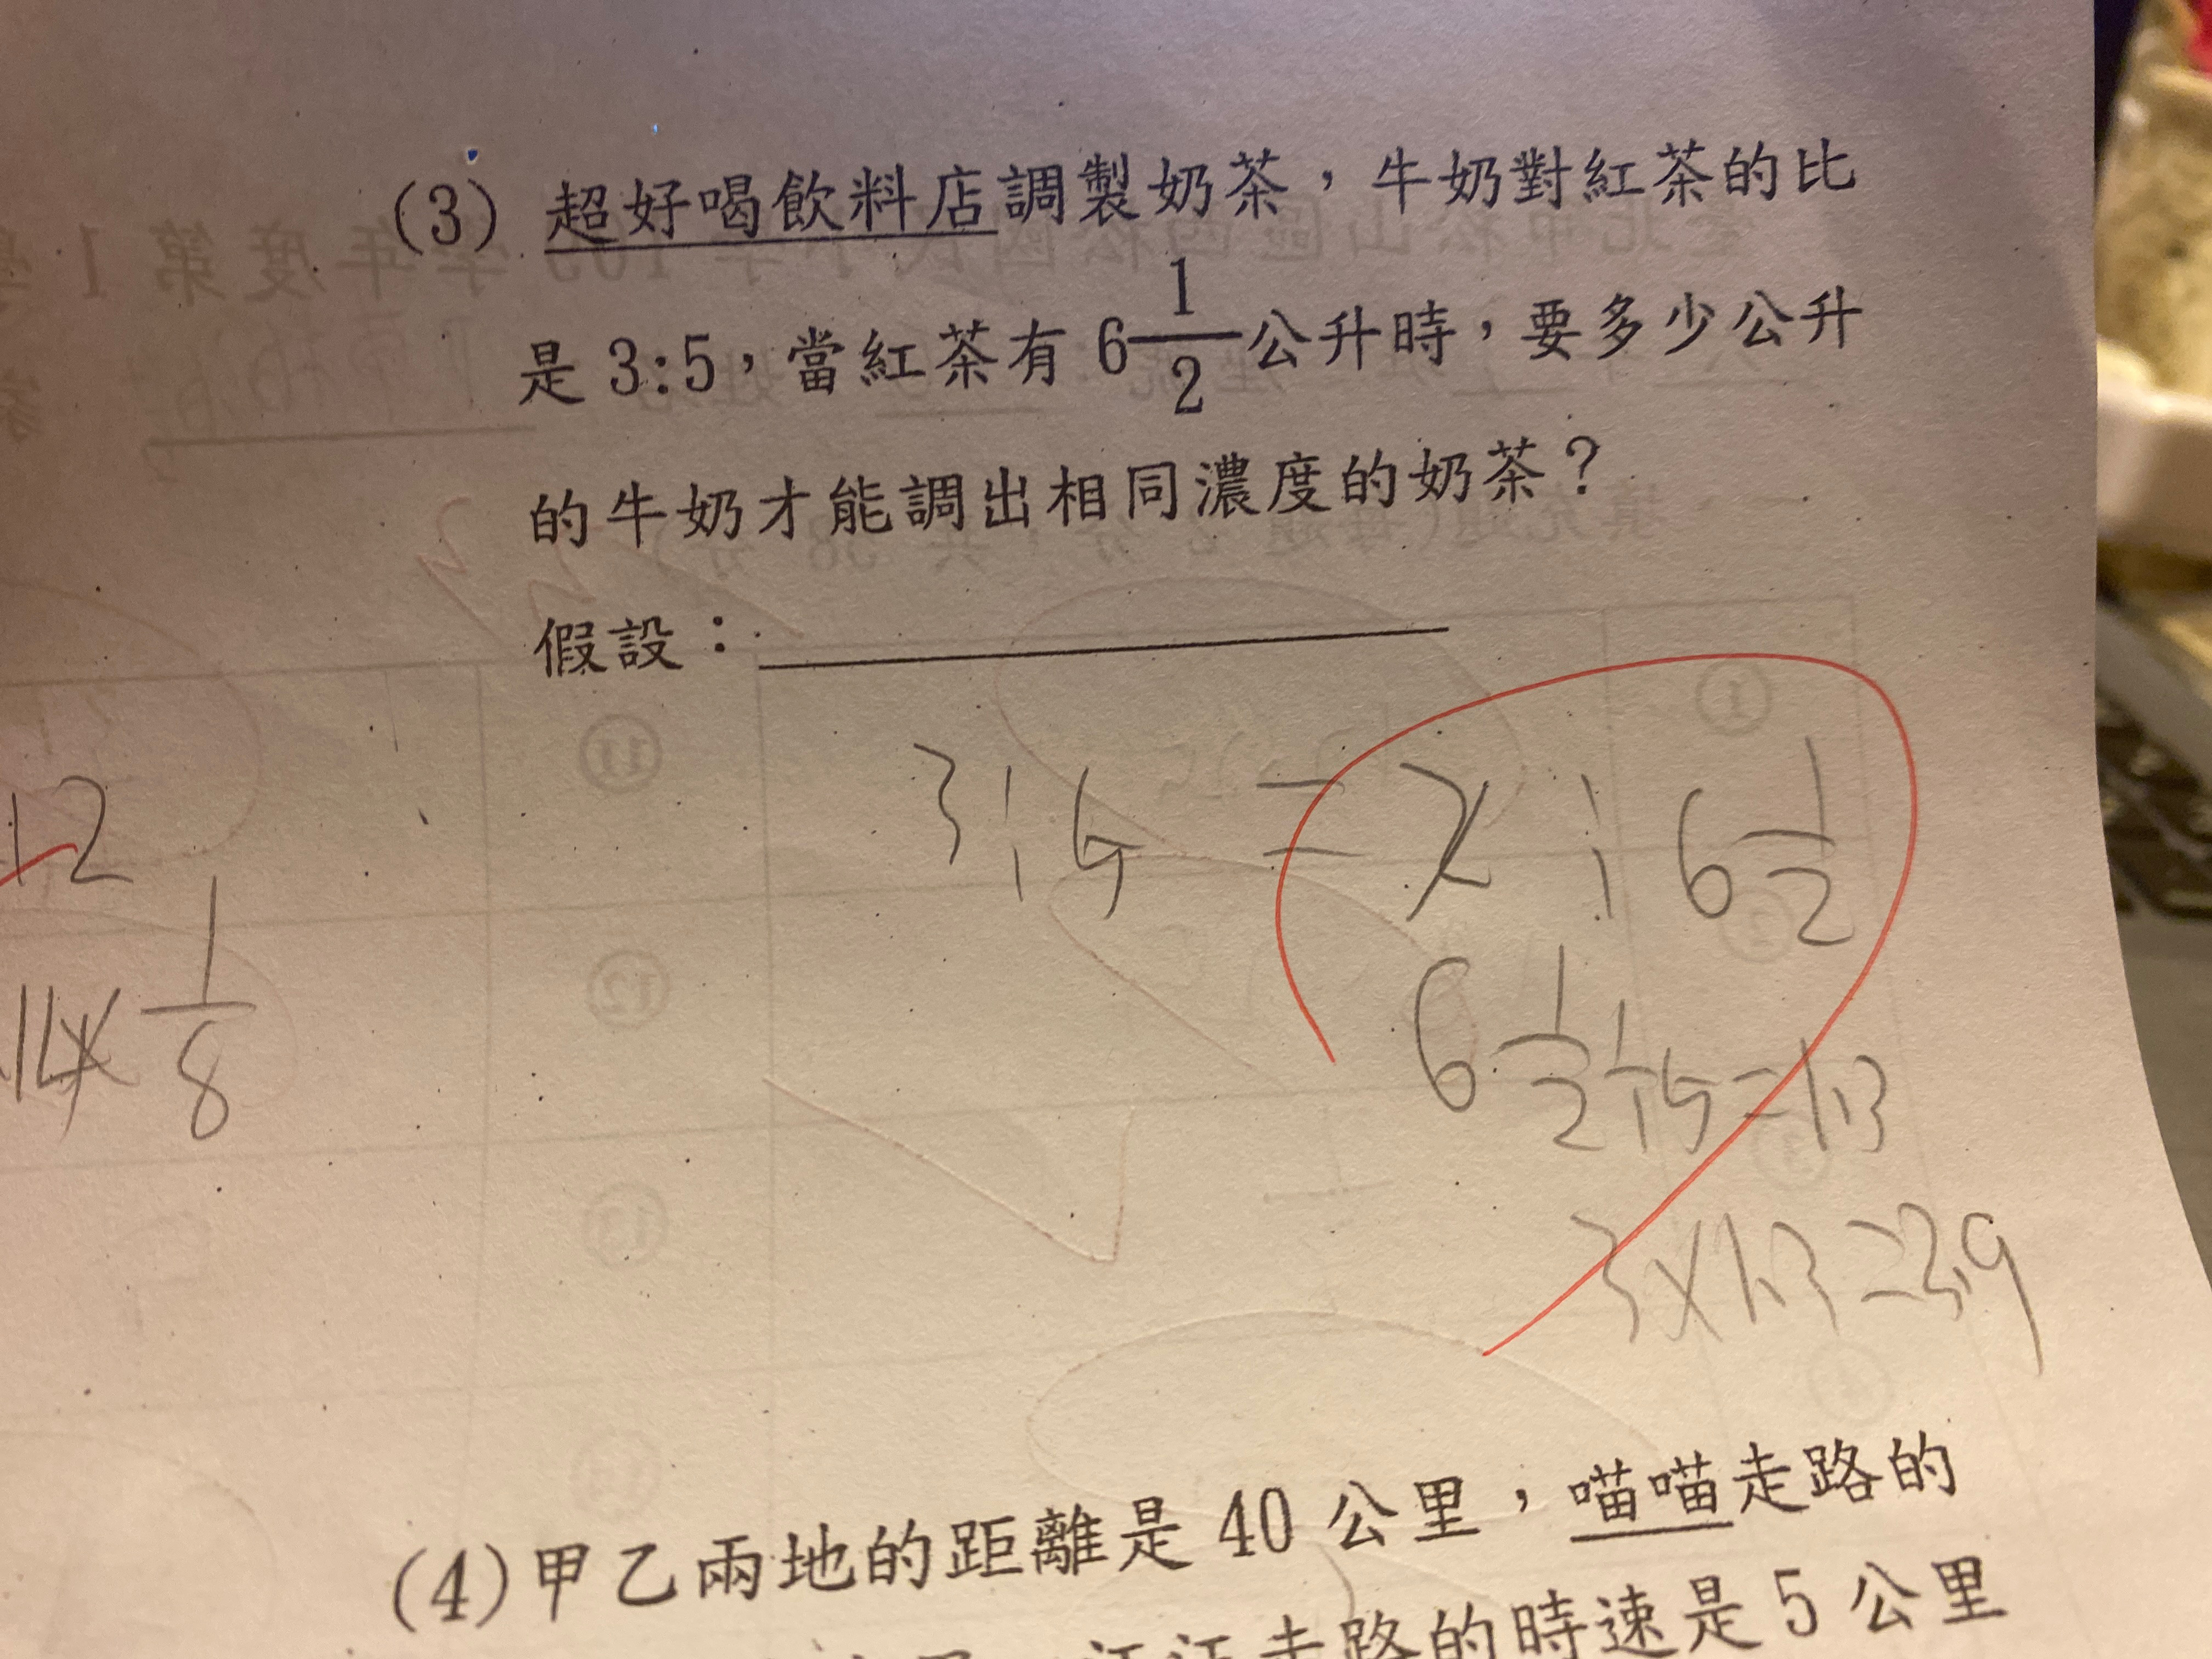 (3) 超好喝飲料店調製奶茶，牛奶對紅茶的比
是 3:5，當紅茶有 6 1/2 公升時，要多少公升
的牛奶才能調出相同濃度的奶茶？
假設：
3:5 = x : 6 1/2
12
6 1/2 ÷ 5 = 1.3
1/8
3×1.3=3.9
(4) 甲乙兩地的距離是 40 公里，喵喵走路的
走路的時速是 5 公里